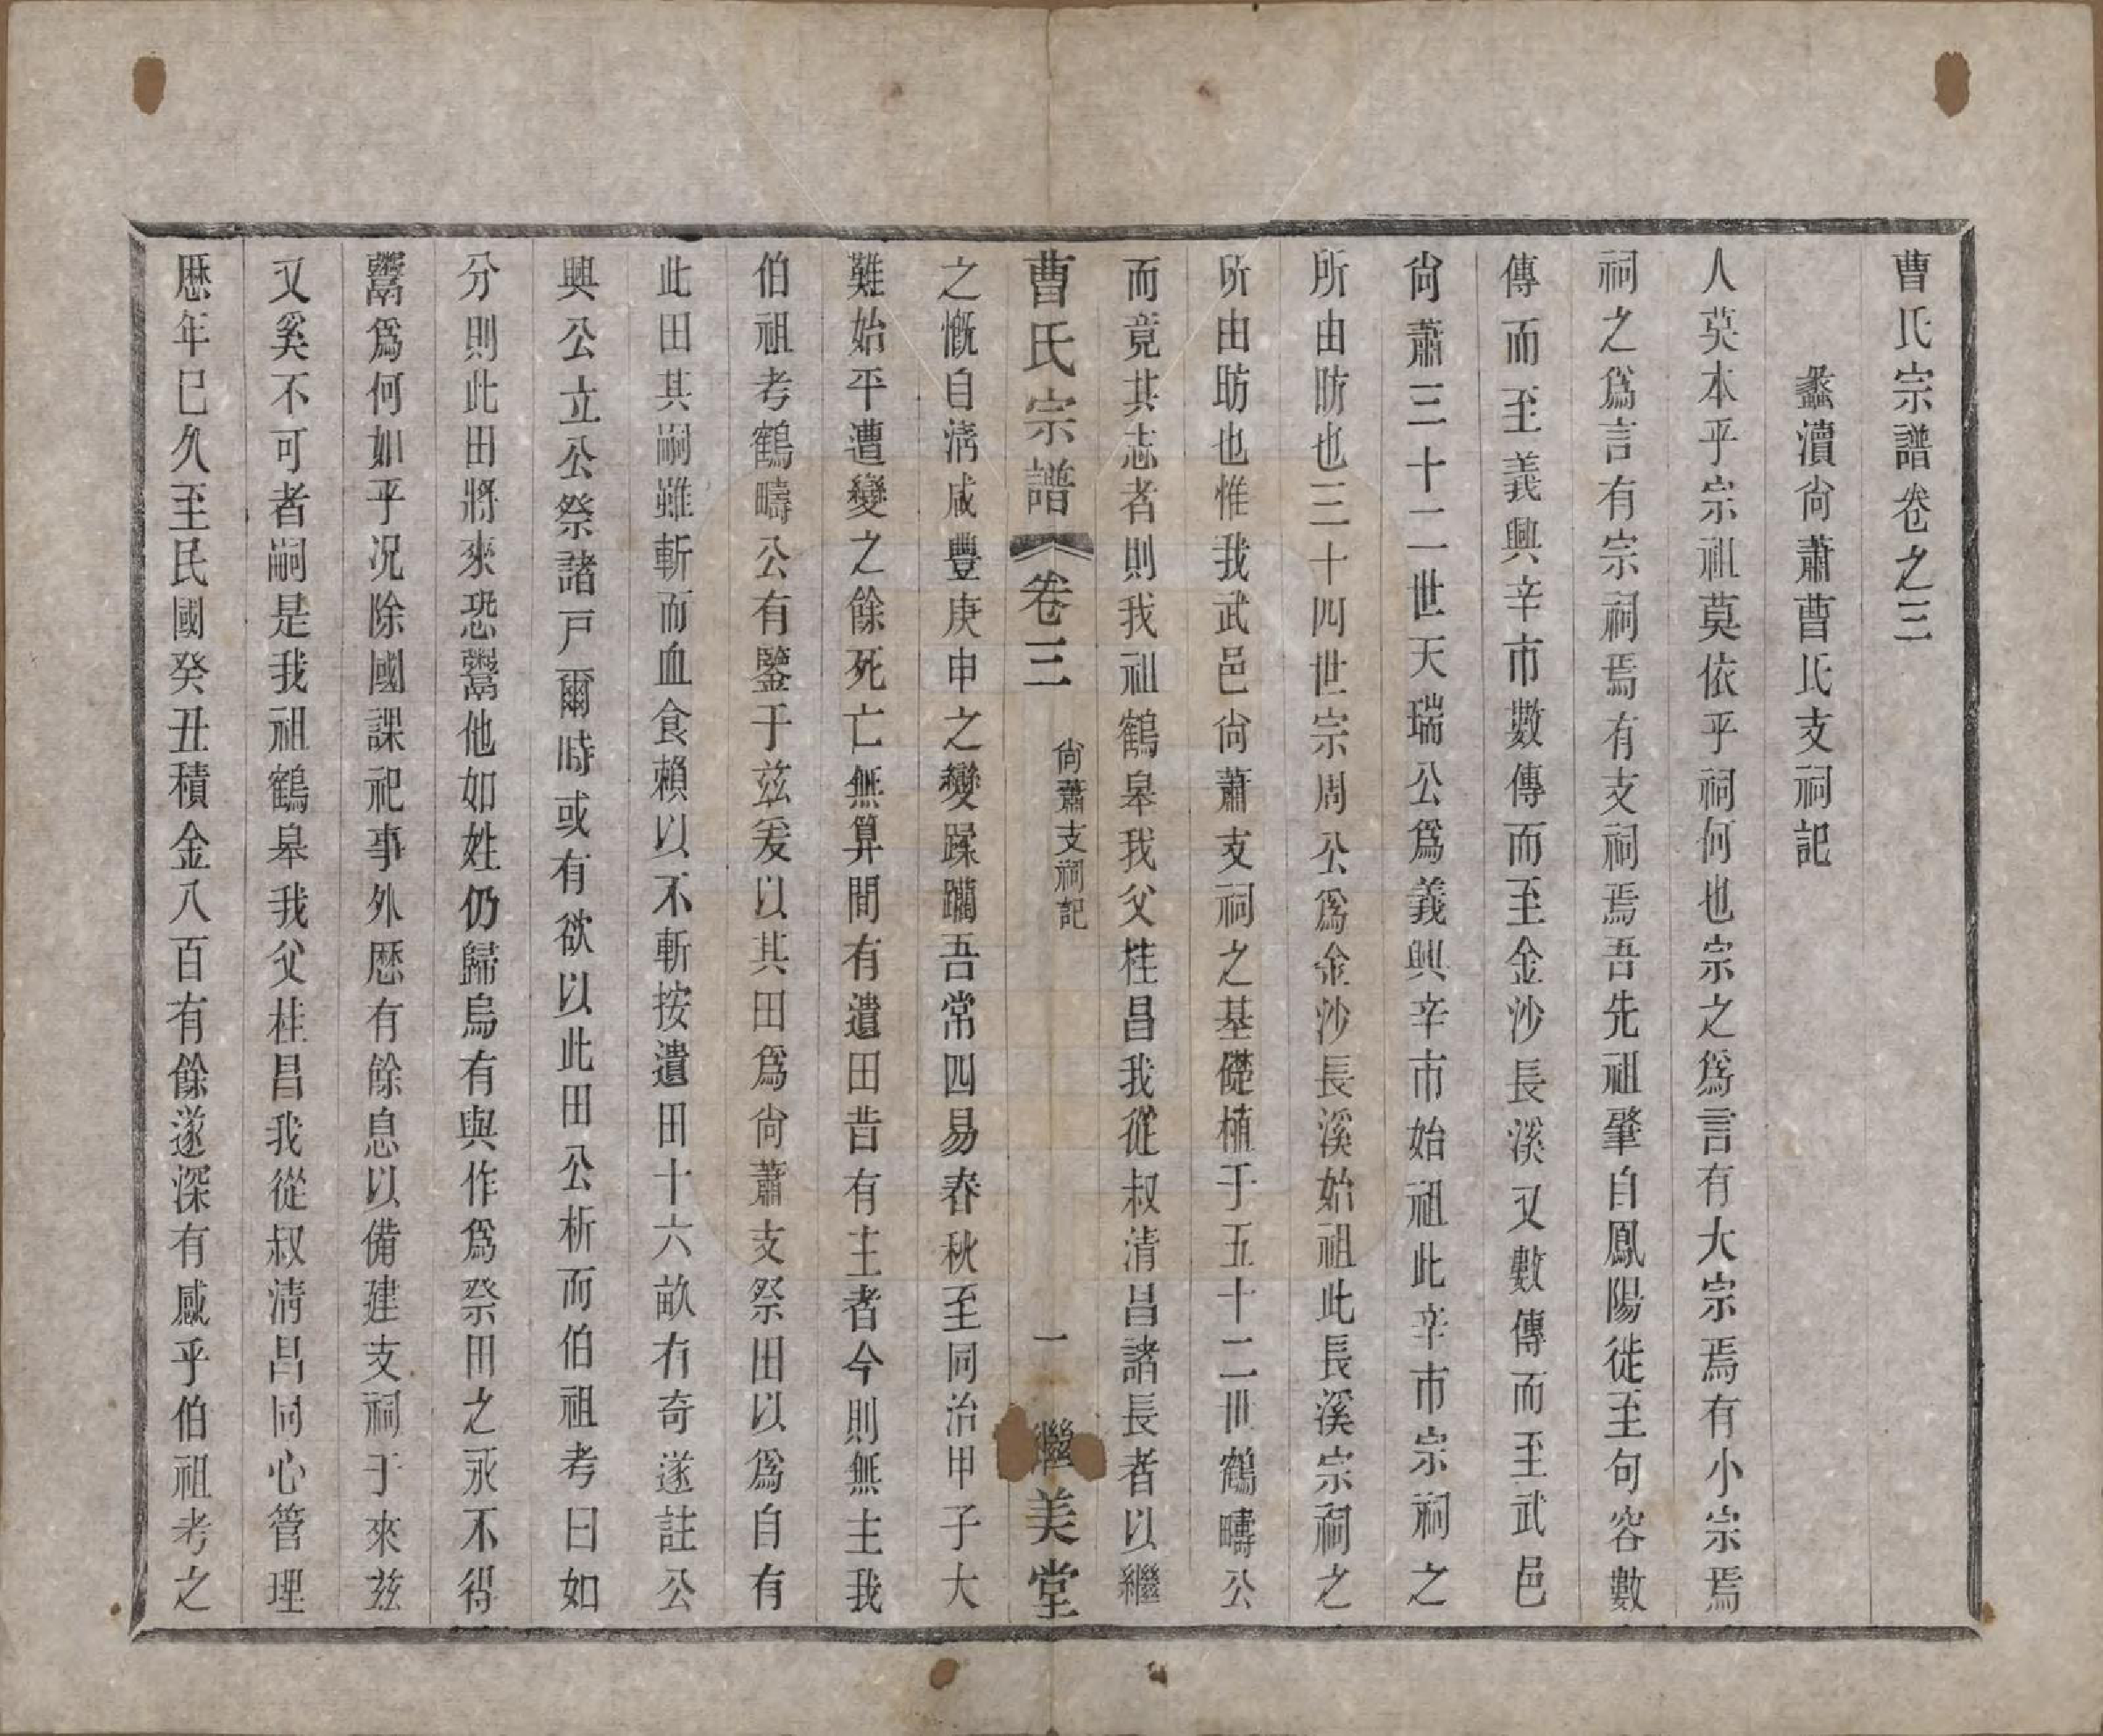 曹氏宗譜卷之三
蠡瀆尙蕭曹氏支祠記
人莫本乎宗祖莫依乎祠何也宗之爲言有大宗焉有小宗焉
祠之爲言有宗祠焉有支祠焉吾先祖肇自鳳陽徙至句容數
傳而至義興辛市數傳而至金沙長溪又數傳而至武邑
尙蕭三十二世天瑞公爲義興辛市始祖此辛市宗祠之
所由昉也三十四世宗周公爲金沙長溪始祖此長溪宗祠之
所由昉也惟我武邑尙蕭支祠之基礎植于五十二世鶴疇公
而竟其志者則我祖鶴皋我父桂昌我從叔清昌諸長者以繼
曹氏宗譜 卷三 尙蕭支祠記 一 繼美堂
之慨自清咸豐庚申之變蹂躪吾常四易春秋至同治甲子大
難始平遭變之餘死亡無算間有遺田昔有主者今則無主我
伯祖考鶴疇公有鑒于兹爰以其田爲尙蕭支祭田以爲自有
此田其嗣雖斬而血食賴以不斬按遺田十六畝有奇遂註公
興公立公祭諸戶爾時或有欲以此田公析而伯祖考曰如
分則此田將來恐鬻他如姓仍歸烏有與作爲祭田之永不得
鬻爲何如乎况除國課祀事外歷有餘息以備建支祠于來兹
又奚不可者嗣是我祖鶴皋我父桂昌我從叔清昌同心管理
歷年已久至民國癸丑積金八百有餘遂深有感乎伯祖考之